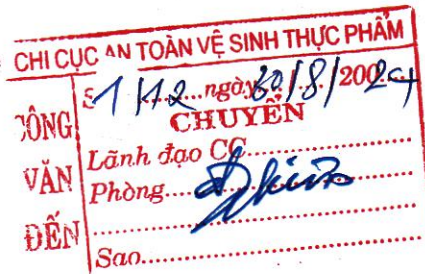 CHI CỤC AN TOÀN VỆ SINH THỰC PHẨM
CÔNG VĂN ĐẾN
S 1112 ngày 30/8/2024
CHUYỂN
Lãnh đạo CC
Phòng
Sao